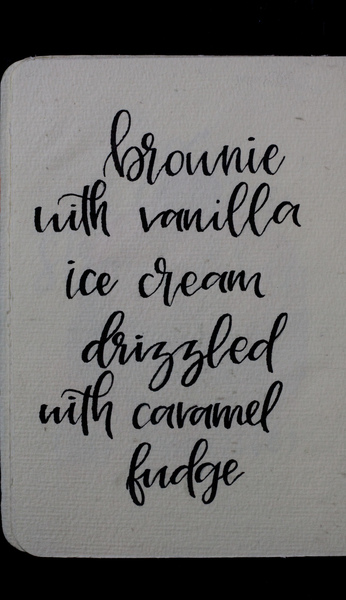 brownie
with vanilla
ice cream
drizzled
with caramel
fudge